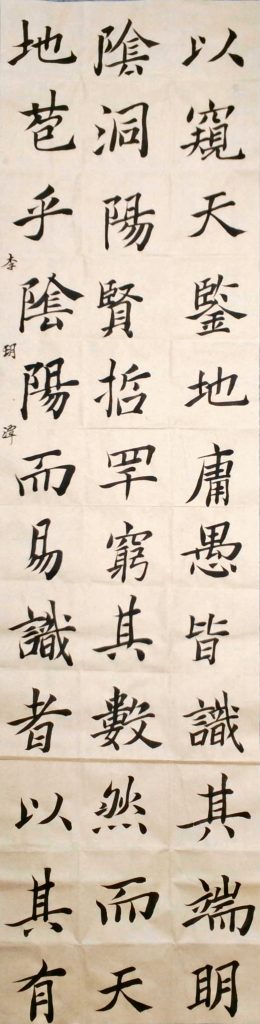 以窺天鑒地庸愚皆識其端明
陰洞陽賢哲罕窮其數然而天
地苞乎陰陽而易識者以其有
李玥潭